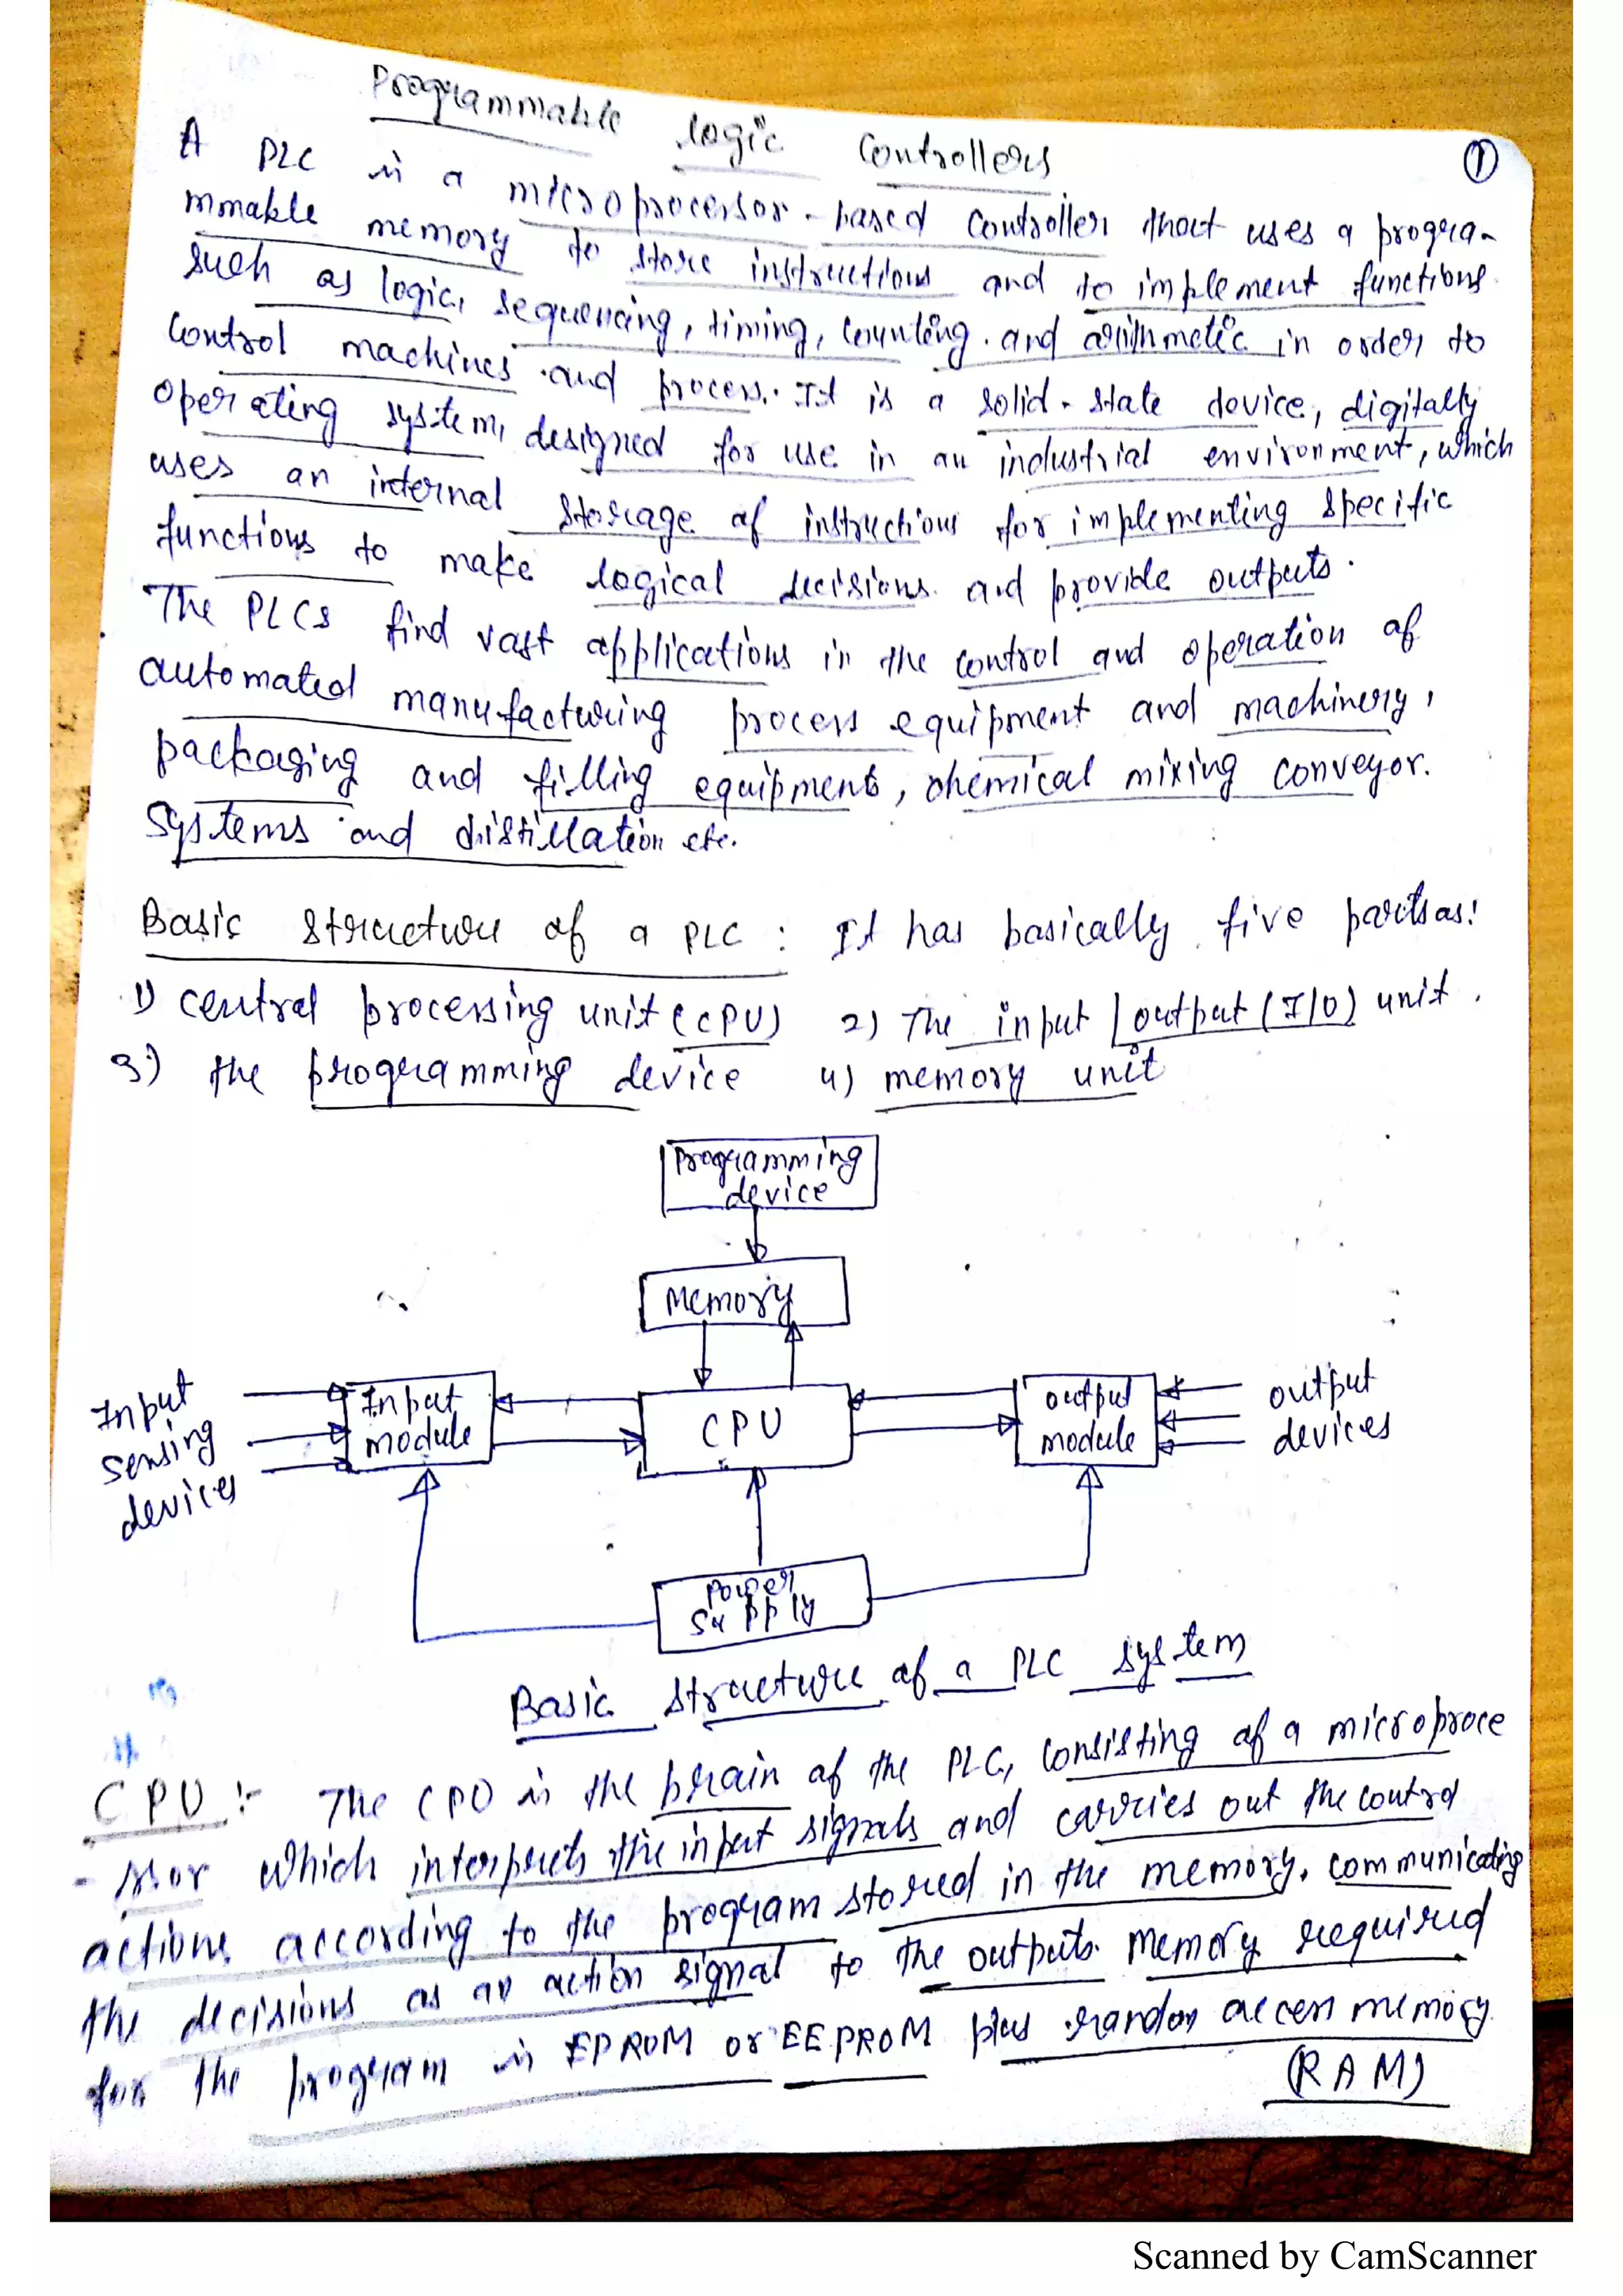 Programmable logic Controllers
1
A PLC is a microprocessor-based Controller that uses a progra-
mmable memory to store instructions and to implement functions
such as logic, sequencing, timing, counting and arithmetic in order to
Control machines and process. It is a solid-state device, digitally
operating system, designed for use in an industrial environment, which
uses an internal storage of instructions for implementing specific
functions to make logical decisions and provide outputs.
The PLCs find vast applications in the control and operation of
automated manufacturing process equipment and machinery,
packaging and filling equipments, chemical mixing conveyor.
Systems and distillation etc.
Basic structure of a PLC : It has basically five parts as:
1) Central processing unit (CPU) 2) The input / output (I/O) unit.
3) the programming device 4) memory unit
Programming
device
Memory
Input
sensing
devices
Input
module
CPU
output
module
output
devices
power
supply
Basic structure of a PLC system
CPU :- The CPU is the brain of the PLC, consisting of a microproce
-ssor which interprets the input signals and carries out the control
actions according to the program stored in the memory, communicating
the decisions as an action signal to the outputs. Memory required
for the program is EPROM or EEPROM plus random access memory
(RAM)
Scanned by CamScanner